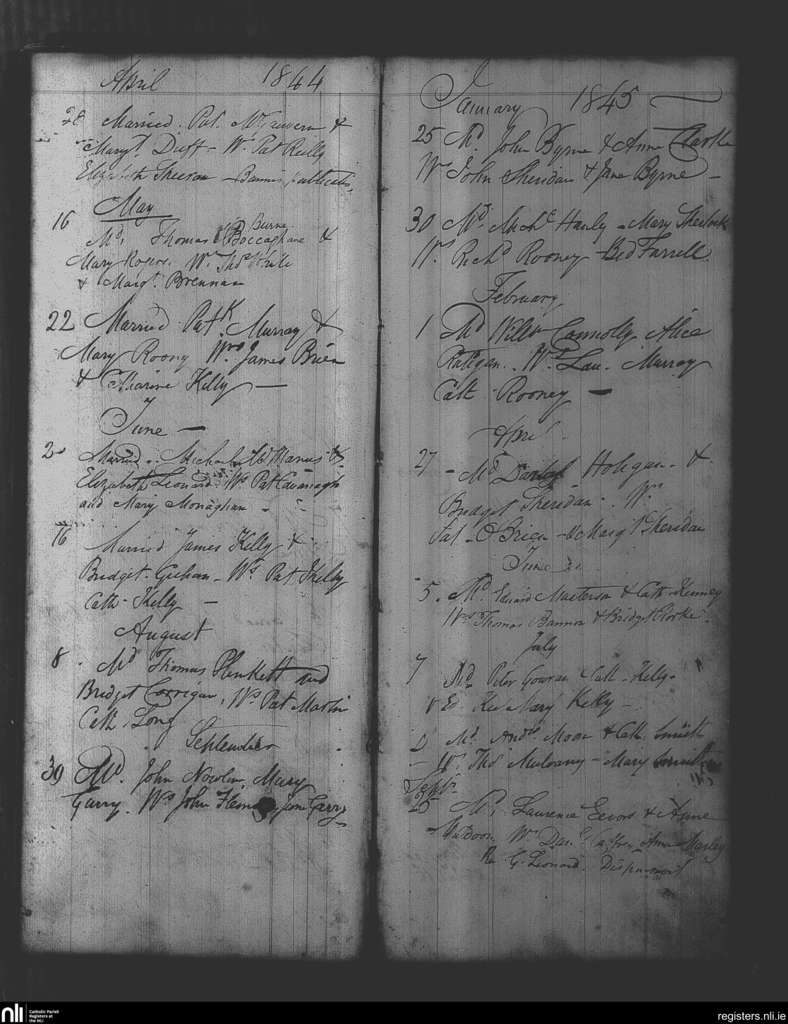 April 1844
28 Married Pat. McGuvern &
Margt. Duff - Ws Pat Reilly
Elizabeth Sheeran - Banns publication
May
16 Md. Thomas Burne
Boccaghane &
Mary Rogers. Ws. Thos White
& Margt. Brennan
22 Married Patk. Murray &
Mary Roony Wss James Brien
& Catharine Kelly —
June —
2 Married Michael McManus &
Elizabeth Leonard Ws Pat Cavanagh
and Mary Monaghan
16 Married James Kelly &
Bridget Guhan - Ws. Pat
Cath. Kelly —
August
8 Md Thomas Plunkett and
Bridget Corrigan, Ws Pat Martin
Cath. Long
September
30 Md. John Nowlan Mary
Garry. Ws John Jane Garry
January 1845 —
25 Md. John Byrne & Anne Clarke
Ws John Sheridan & Jane Byrne —
30 Md. Michl Hanly - Mary Sherlock
Ws Richd Rooney - Bed Farrell
February
1 Md Willm Connolly Alice
Ratigan. Ws Lau. Murray
Cath Rooney —
April
27 - Md Hohgan - &
Bridget Sheridan. Ws
Pat - O Brien - & Margt Sheridan
June
5. Md. Edward Masterson & Cath Kenney
Wss Thomas Bannon & Bridget Rorke.
July
7 Md. Peter Gowran Cath - Kelly -
& Ed. Mary Kelly —
Md. Andw Moon & Cath Smith
- Ws Thos Mulvany - Mary Smith
Septr.
25 Md. Laurence & Anne
Ws Danl Anne Manley
G. Leonard. Dispensent
nli
Catholic Parish
Registers at
the NLI
registers.nli.ie